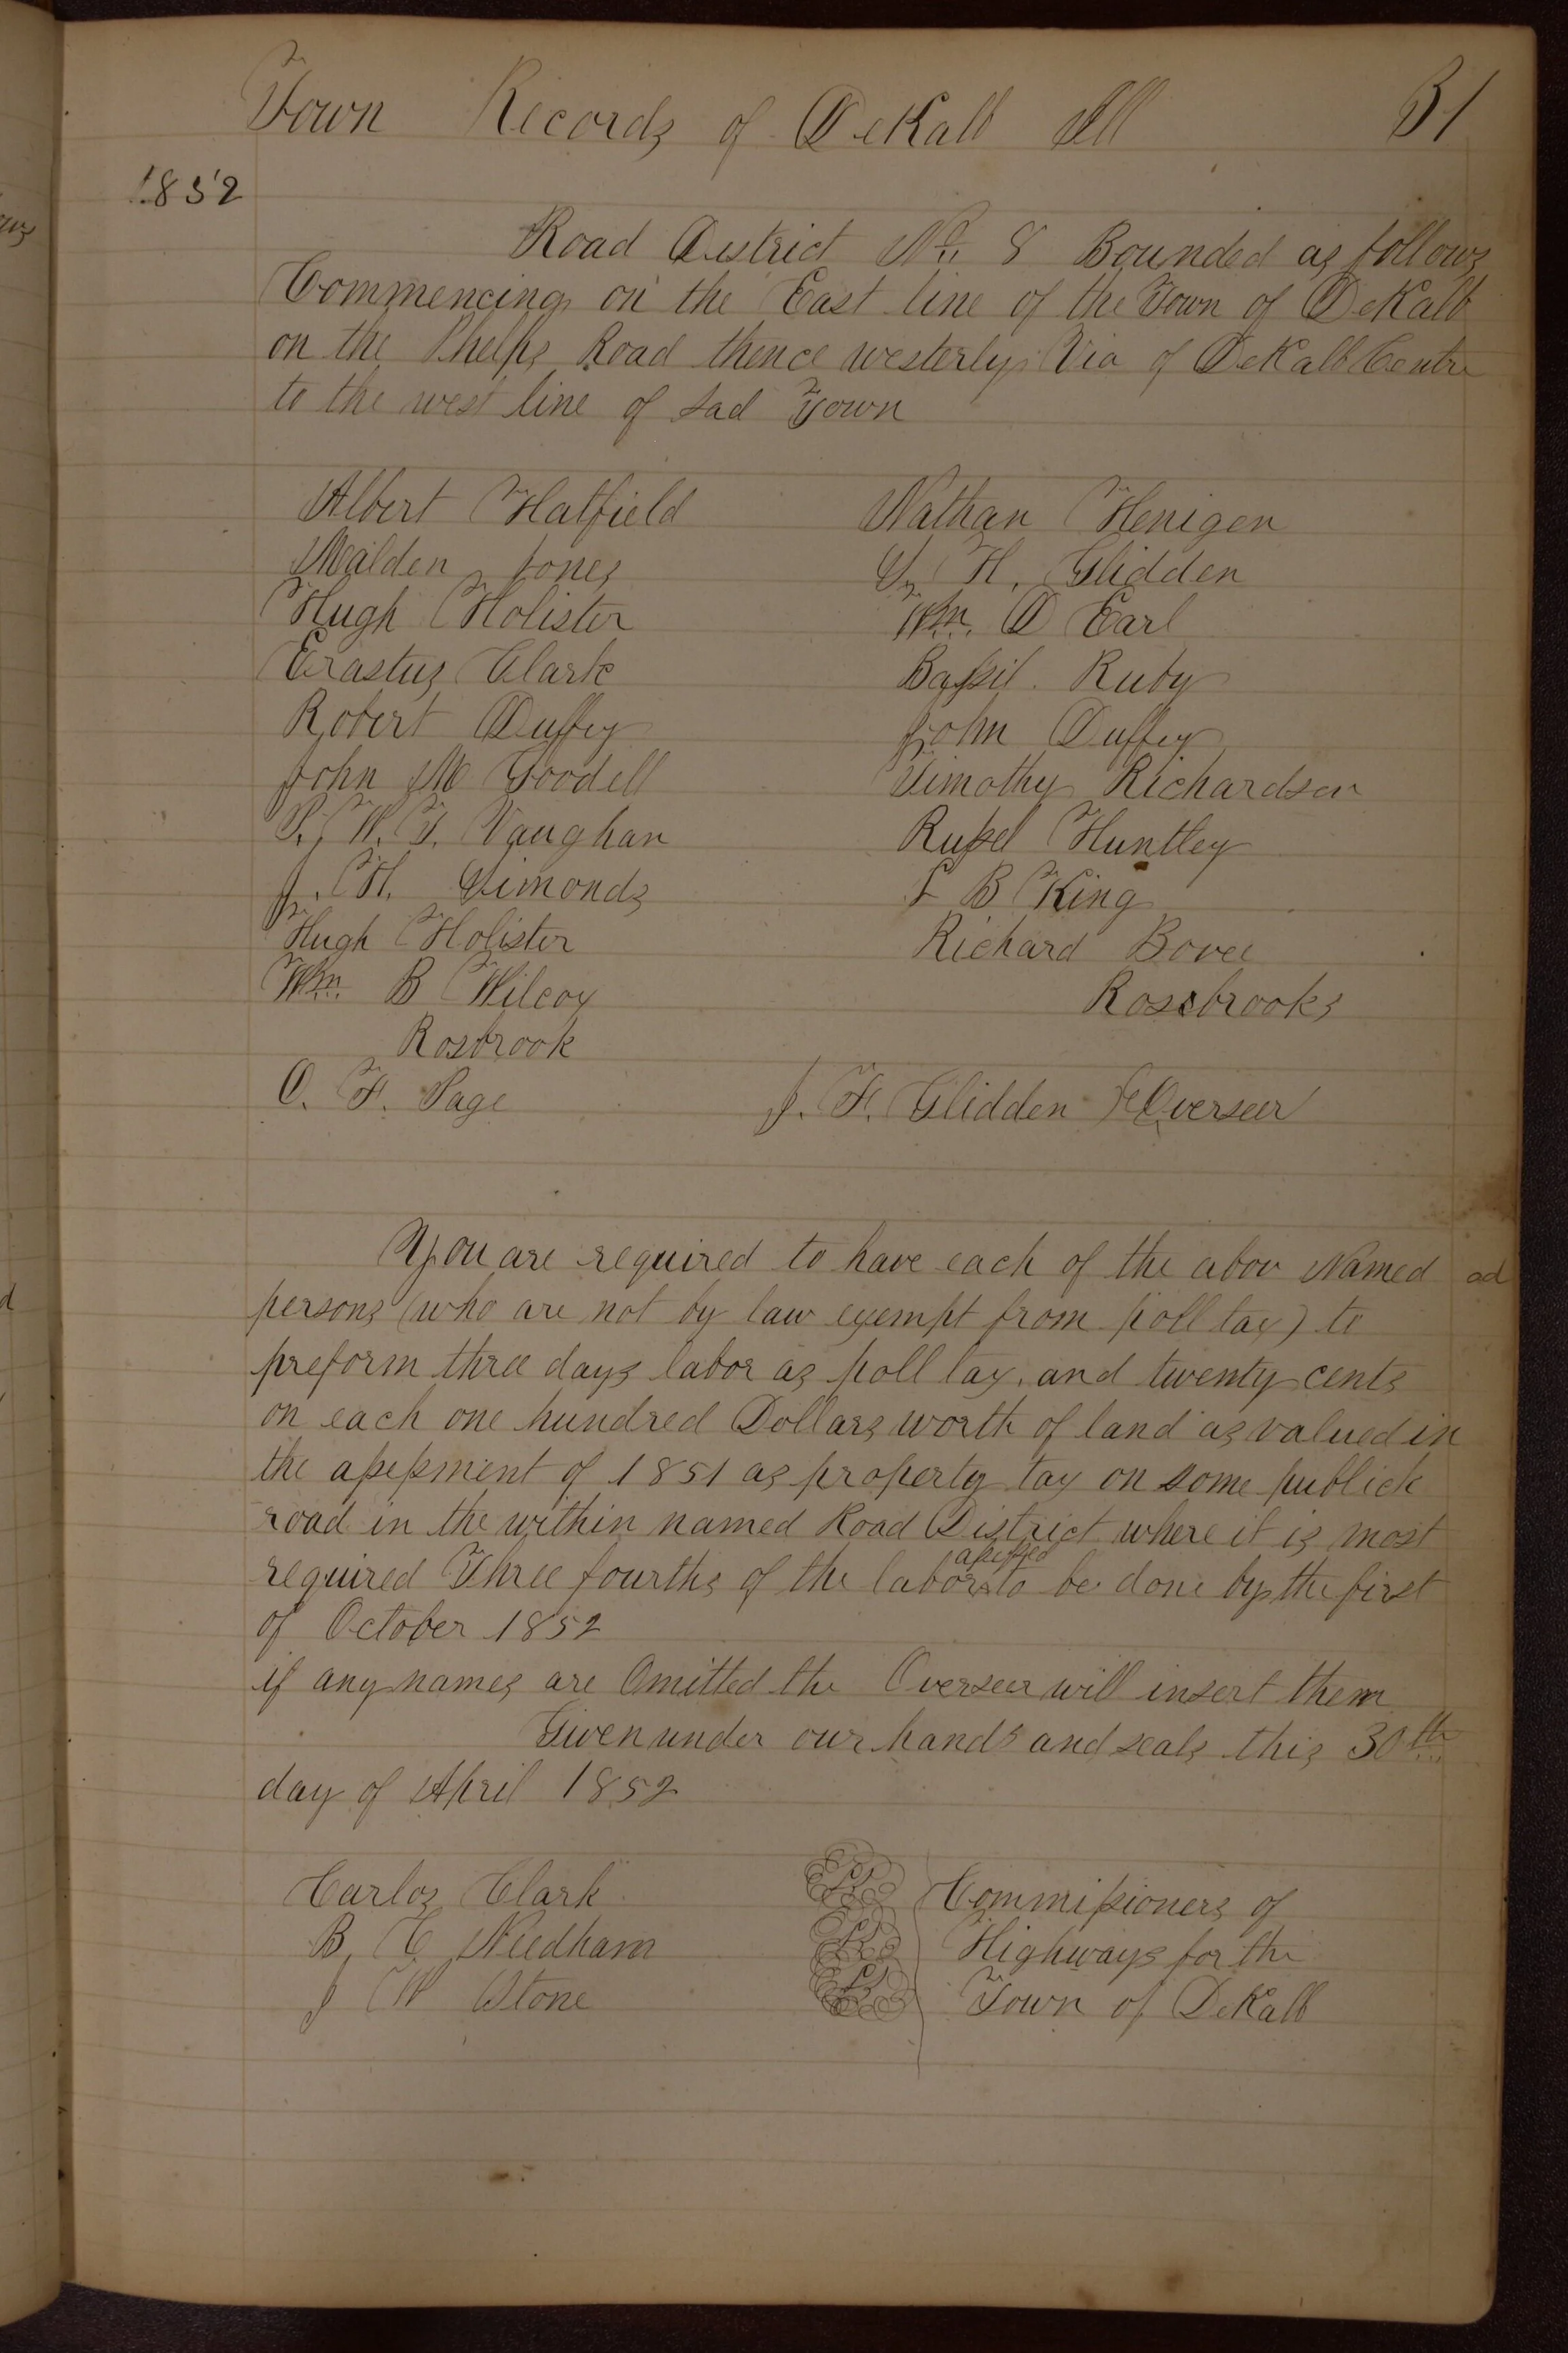 Town Records of DeKalb Ill 31
1852
Road District No. 8 Bounded as follows
Commencing on the East line of the Town of DeKalb
on the Phelps Road thence westerly Via of DeKalb Centre
to the west line of sad Town
Albert Hatfield Nathan Henigen
Malden Jones S, H, Glidden
Hugh Holister Wm. D Earl
Erastus Clark Bassil Ruby
Robert Duffey John Duffey
John M Goodell Timothy Richardson
P. W. T. Vaughan Russel Huntley
J. H. Simonds L B King
Hugh Holister Richard Bovee
Wm. B Wilcox Rosebrooks
Rosbrook
O. F. Page J. F. Glidden Overseer
You are required to have each of the abov Named ad
persons (who are not by law exempt from poll tax) to
preform three days labor as poll tax, and twenty cents
on each one hundred Dollars worth of land as valued in
the assessment of 1851 as property tax on some publick
road in the within named Road District where it is most
assessed
required Three fourths of the labor to be done by the first
of October 1852
if any names are Omitted the Overseer will insert them
Given under our hands and seals this 30th
day of April 1852
Carlos Clark LS Commissioners of
B, C Needham LS Highways for the
J W Stone LS Town of DeKalb